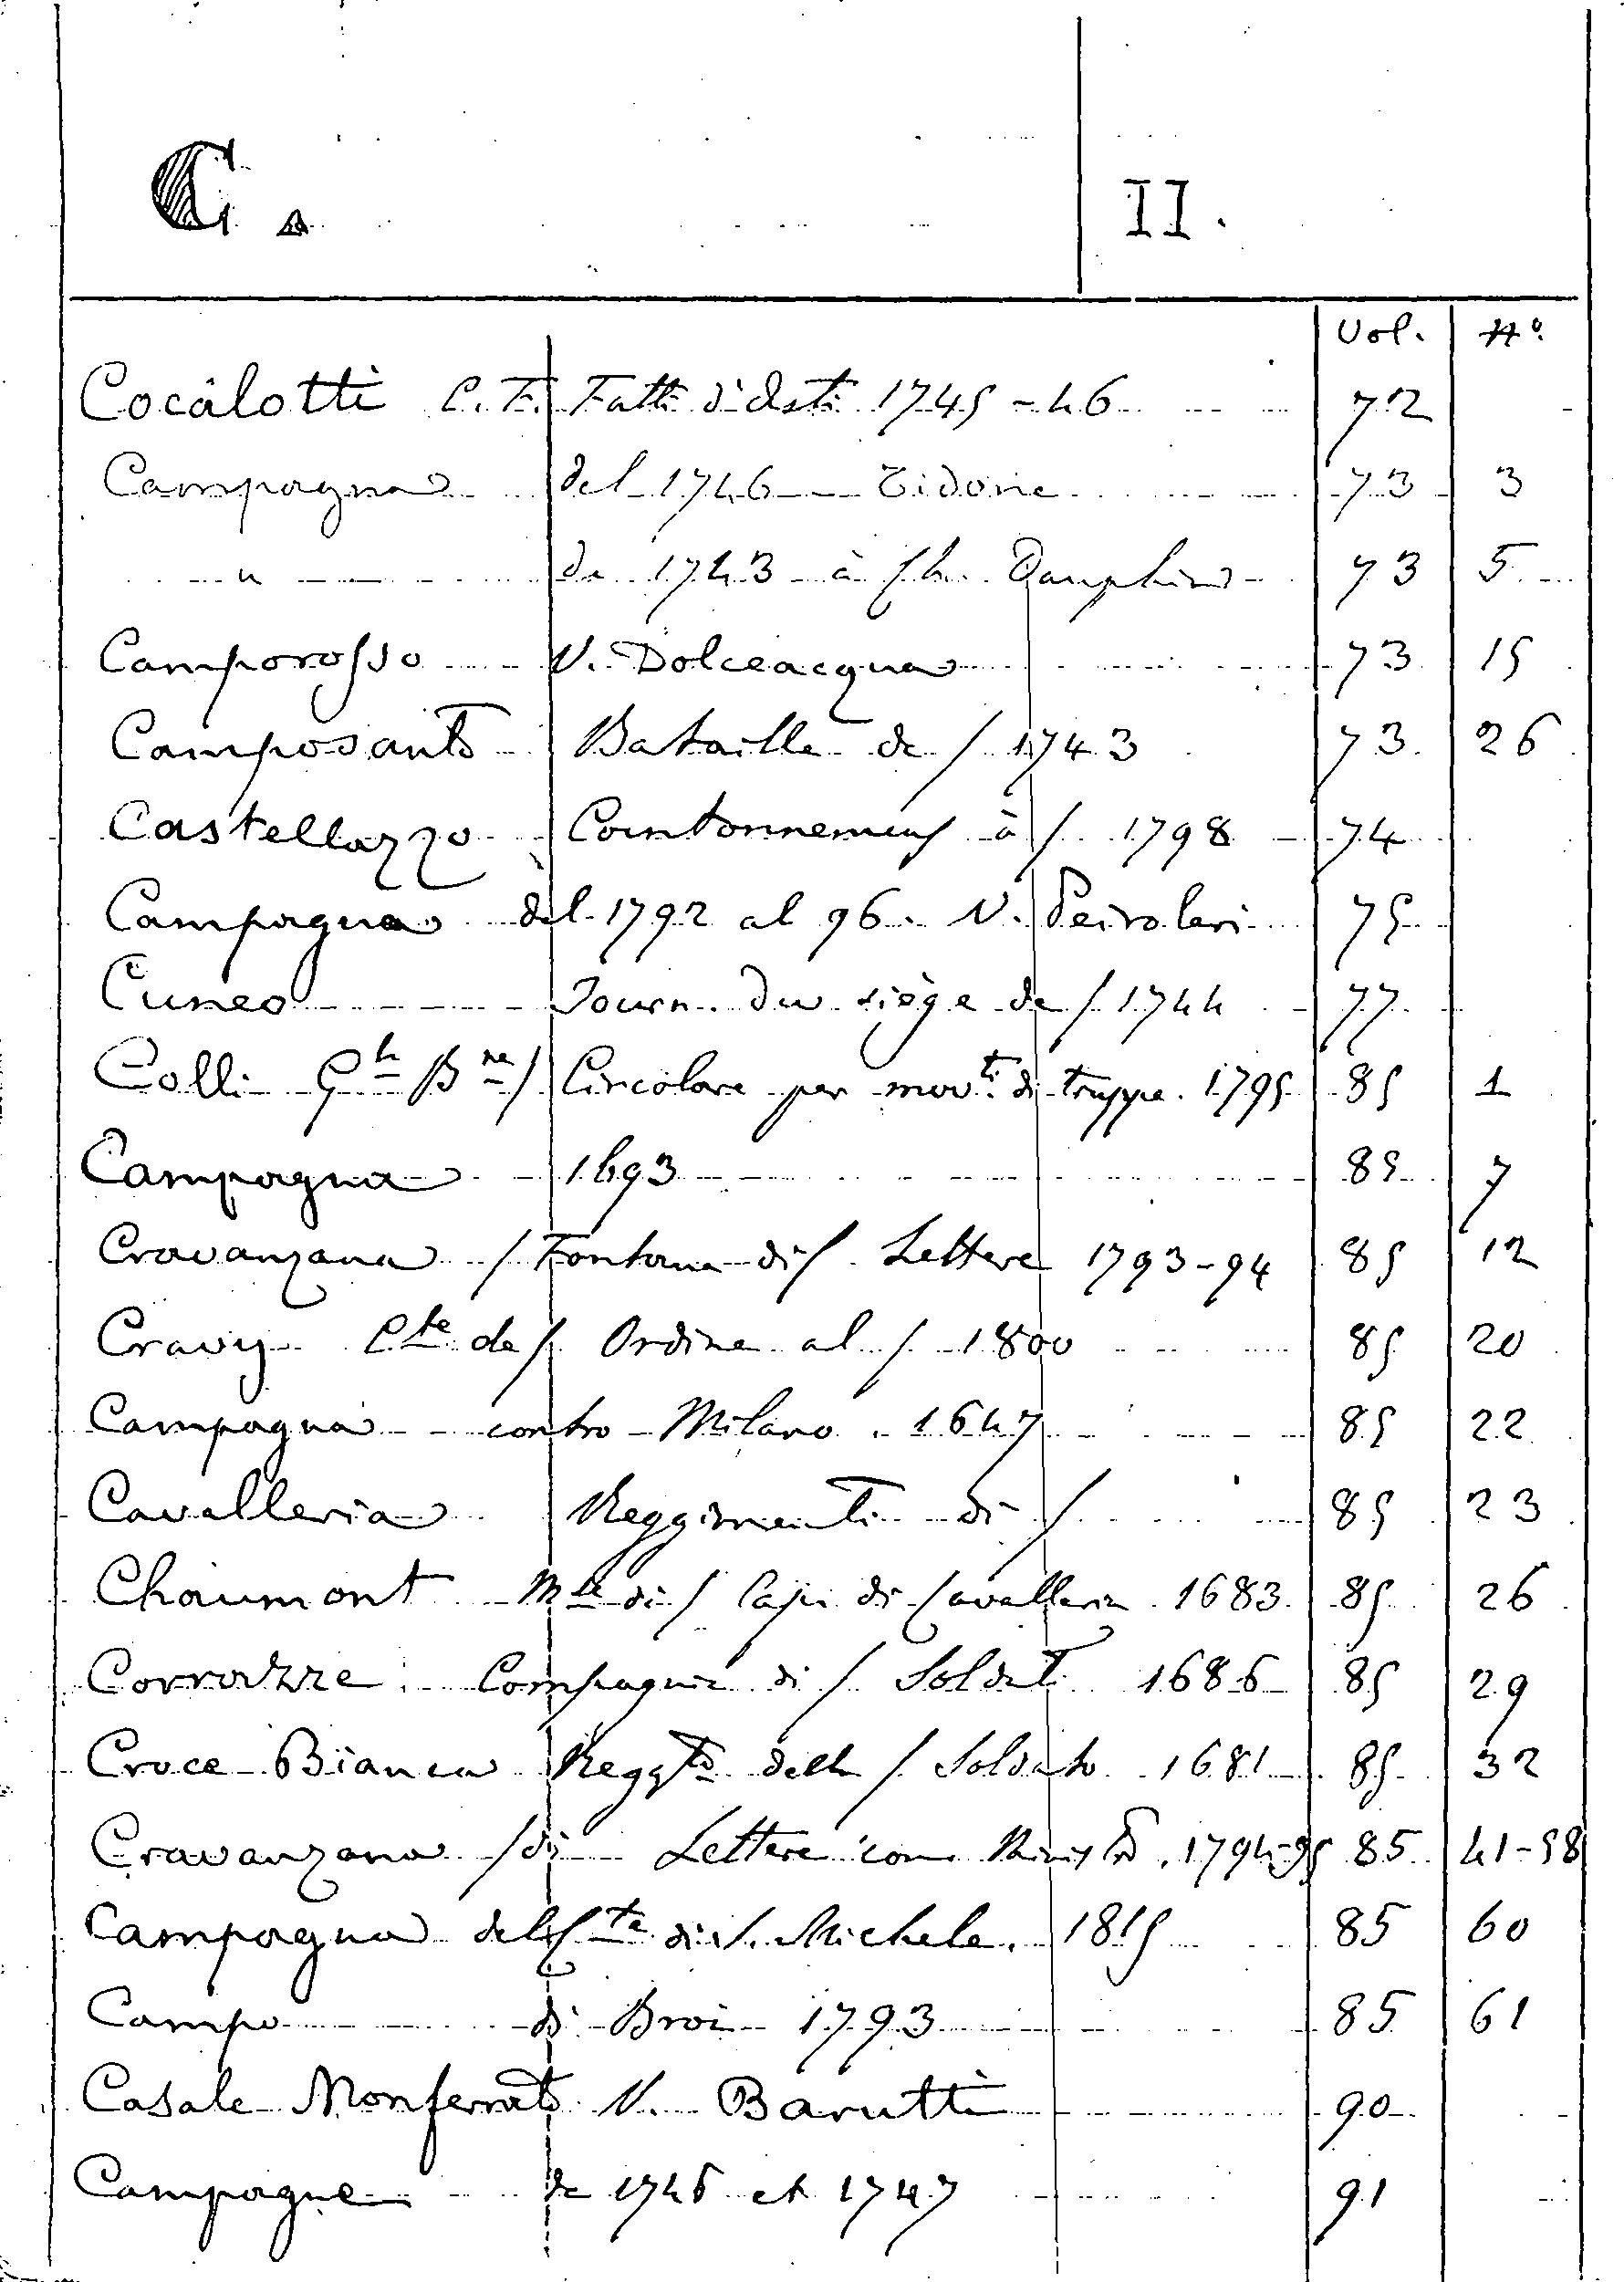 C. II.
Vol. N°.
Cocalotti C. F. Fatti d'Asti 1745-46 72
Campagna del 1746 Tidone 73 3
" de 1743 à Ch. Dauphin 73 5
Camporosso V. Dolceacqua 73 15
Camposanto Bataille de / 1743 73 26
Castellazzo Cantonnement à / 1798 74
Campagna del 1792 al 96. V. Peiroleri 75
Cuneo Journ. du siège de / 1744 77
Colli Gⁿ Bⁿᵉ/ Circolare per movti. di truppe. 1795 85 1
Campagna 1693 85 7
Cravanzana / Fontana di / Lettere 1793-94 85 12
Cravy Cte de / Ordine al / 1800 85 20
Campagna contro Milano. 1647 85 22
Cavalleria Reggimenti di / 85 23
Chaumont Mse di / Capi di Cavalleria 1683 85 26
Compagnia di / Soldati 1686 85 29
Croce Bianca Reggto della / Soldato 1681 85 32
Cravanzana / di Lettere con 1794-95 85 41-58
Campagna del Cte di S. Michele. 1815 85 60
Campo di Broi 1793 85 61
Casale Monferrato V. Barutti 90
Campagne de 1746 et 1747 91